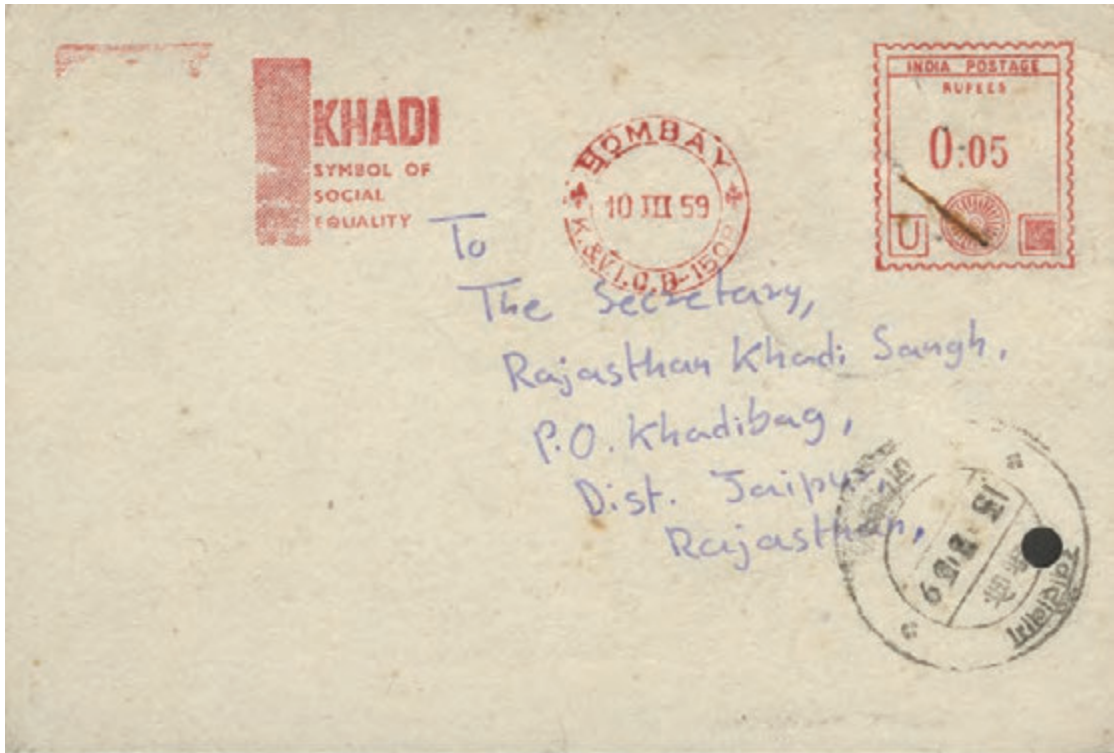 KHADI
SYMBOL OF
SOCIAL
EQUALITY
BOMBAY
10 III 59
K.&V.I.C.B-150
INDIA POSTAGE
RUPEES
0:05
U
To
The Secretary,
Rajasthan Khadi Sangh,
P.O. Khadibag,
Dist. Jaipur,
Rajasthan,